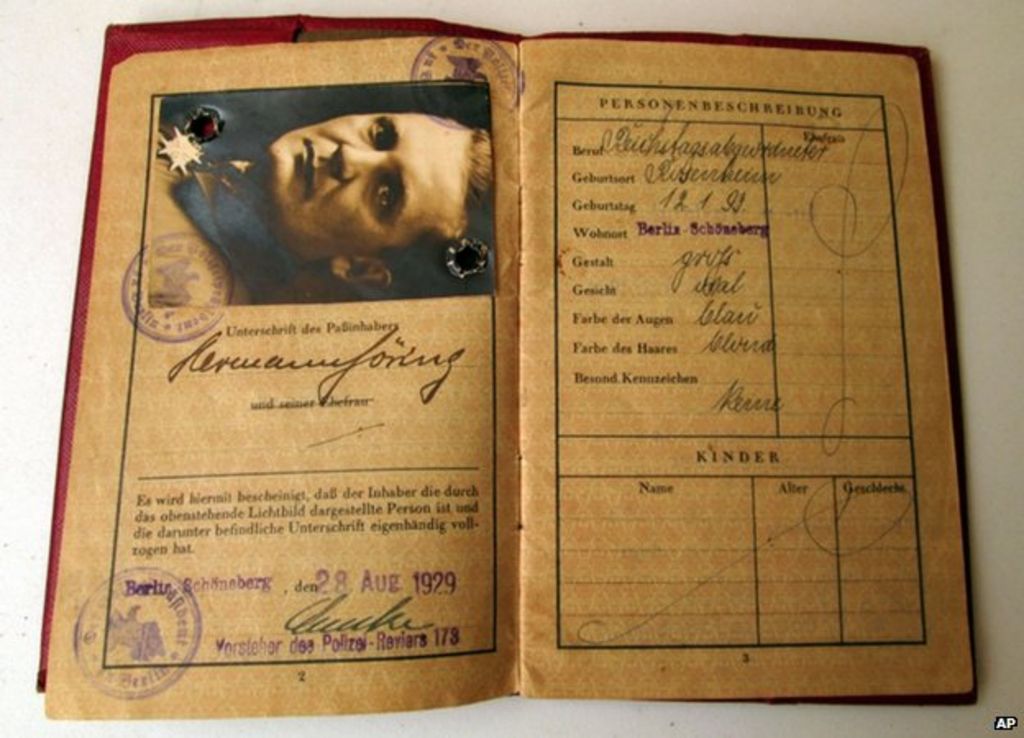 Unterschrift des Paßinhabers
Hermann Göring
und seiner Ehefrau
Es wird hiermit bescheinigt, daß der Inhaber die durch
das obenstehende Lichtbild dargestellte Person ist und
die darunter befindliche Unterschrift eigenhändig voll-
zogen hat.
Berlin-Schöneberg, den 28 AUG 1929
Vorsteher des Polizei-Reviers 173
2
PERSONENBESCHREIBUNG
Ehefrau
Beruf Reichstagsabgeordneter
Geburtsort Rosenheim
Geburtstag 12 1 93.
Wohnort Berlin-Schöneberg
Gestalt groß
Gesicht oval
Farbe der Augen blau
Farbe des Haares blond
Besond. Kennzeichen
keine
KINDER
Name Alter Geschlecht
3
AP